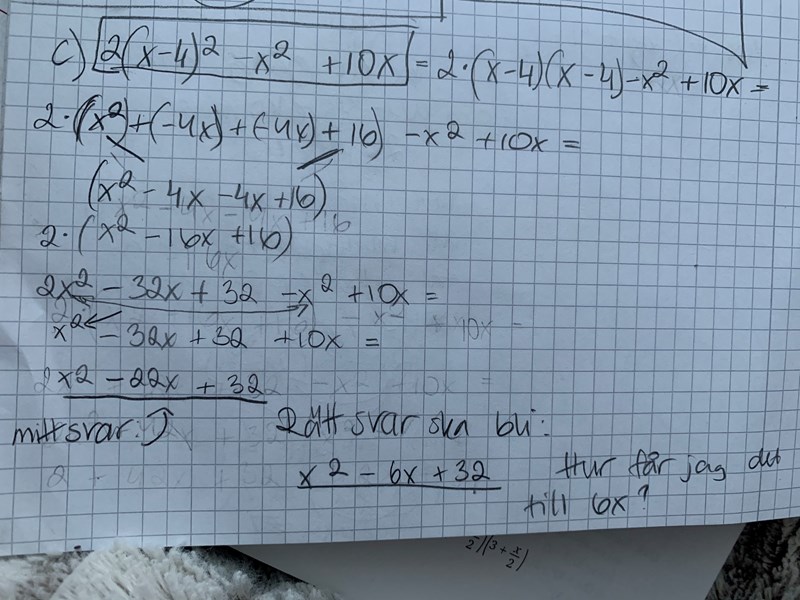 c) 2(x-4)² -x² +10x = 2·(x-4)(x-4)-x² +10x =
2·(x²)+(-4x)+(-4x)+16) -x² +10x =
(x² - 4x -4x +16)
2·(x² -16x +16)
2x² - 32x + 32 -x² +10x =
x² - 32x +32 +10x =
x2 -22x + 32
mitt svar:
Rätt svar ska bli:
x² - 6x + 32
Hur får jag det
till 6x?
2)(3 + x/2)